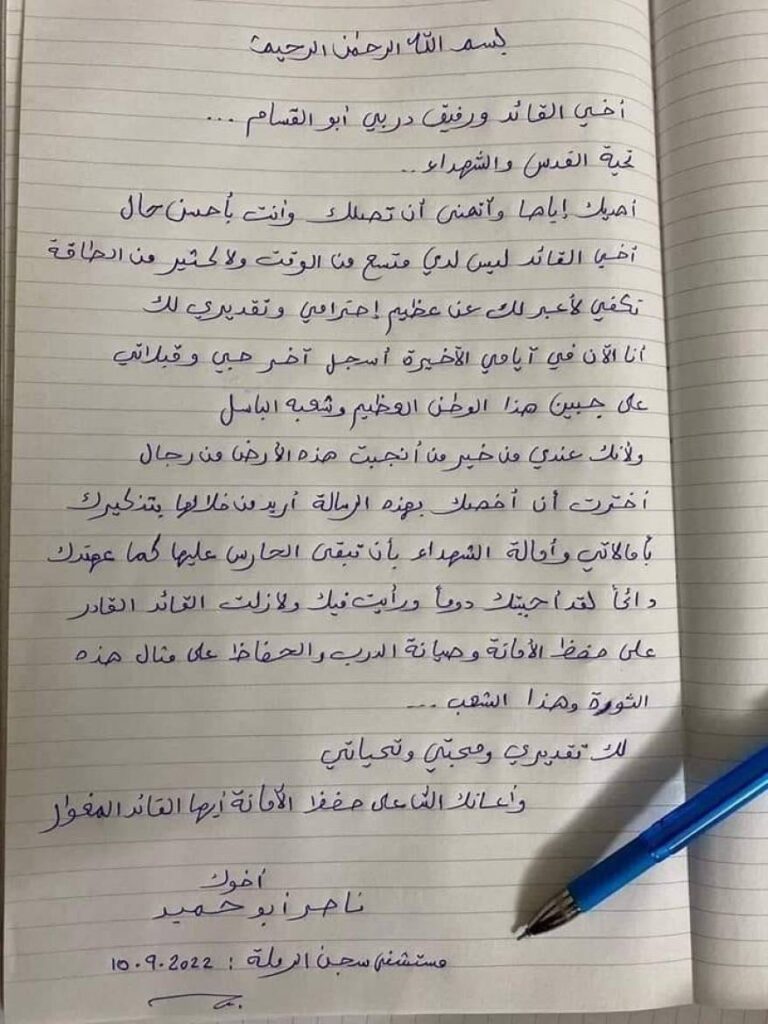 بسم الله الرحمن الرحيم
أخي القائد ورفيق دربي أبو القسام ...
تحية القدس والشهداء ..
أهديك إياها وأتمنى أن تصلك وأنت بأحسن حال
أخي القائد ليس لدي متسع من الوقت ولا الكثير من الطاقة
تكفي لأعبر لك عن عظيم إحترامي وتقديري لك
أنا الآن في أيامي الأخيرة أسجل آخر حبي وقبلاتي
على جبين هذا الوطن العظيم وشعبه الباسل
ولأنك عندي من خير من أنجبت هذه الأرض من رجال
أخترت أن أخصك بهذه الرسالة أريد من خلالها بتذكيرك
بأماناتي وأمانة الشهداء بأن تبقى الحارس عليها كما عهدتك
دائماً لقد أحببتك دوماً ورأيت فيك ولازلت القائد القادر
على حفظ الأمانة وصيانة الدرب والحفاظ على منال هذه
الثورة وهذا الشعب ...
لك تقديري ومحبتي وتحياتي
وأعانك الله على حفظ الأمانة أيها القائد المغوار
أخوك
ناصر أبو حميد
مستشفى سجن الرملة : 10.9.2022